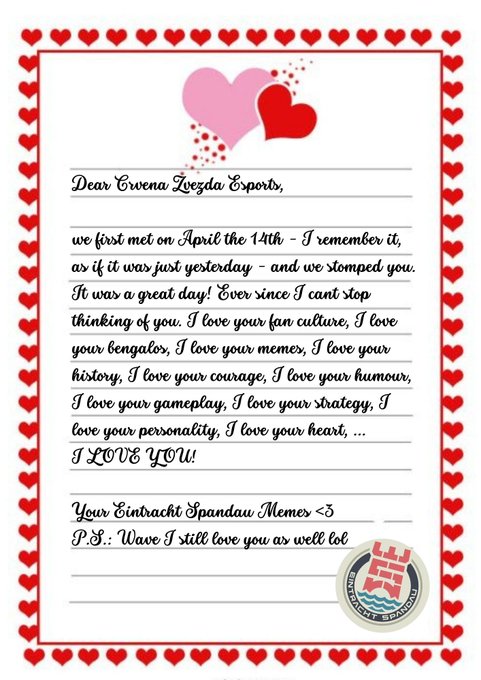 Dear Crvena Zvezda Esports,
we first met on April the 14th - I remember it,
as if it was just yesterday - and we stomped you.
It was a great day! Ever since I cant stop
thinking of you. I love your fan culture, I love
your bengalos, I love your memes, I love your
history, I love your courage, I love your humour,
I love your gameplay, I love your strategy, I
love your personality, I love your heart, ...
I LOVE YOU!
Your Eintracht Spandau Memes <3
P.S.: Wave I still love you as well lol
EINTRACHT SPANDAU